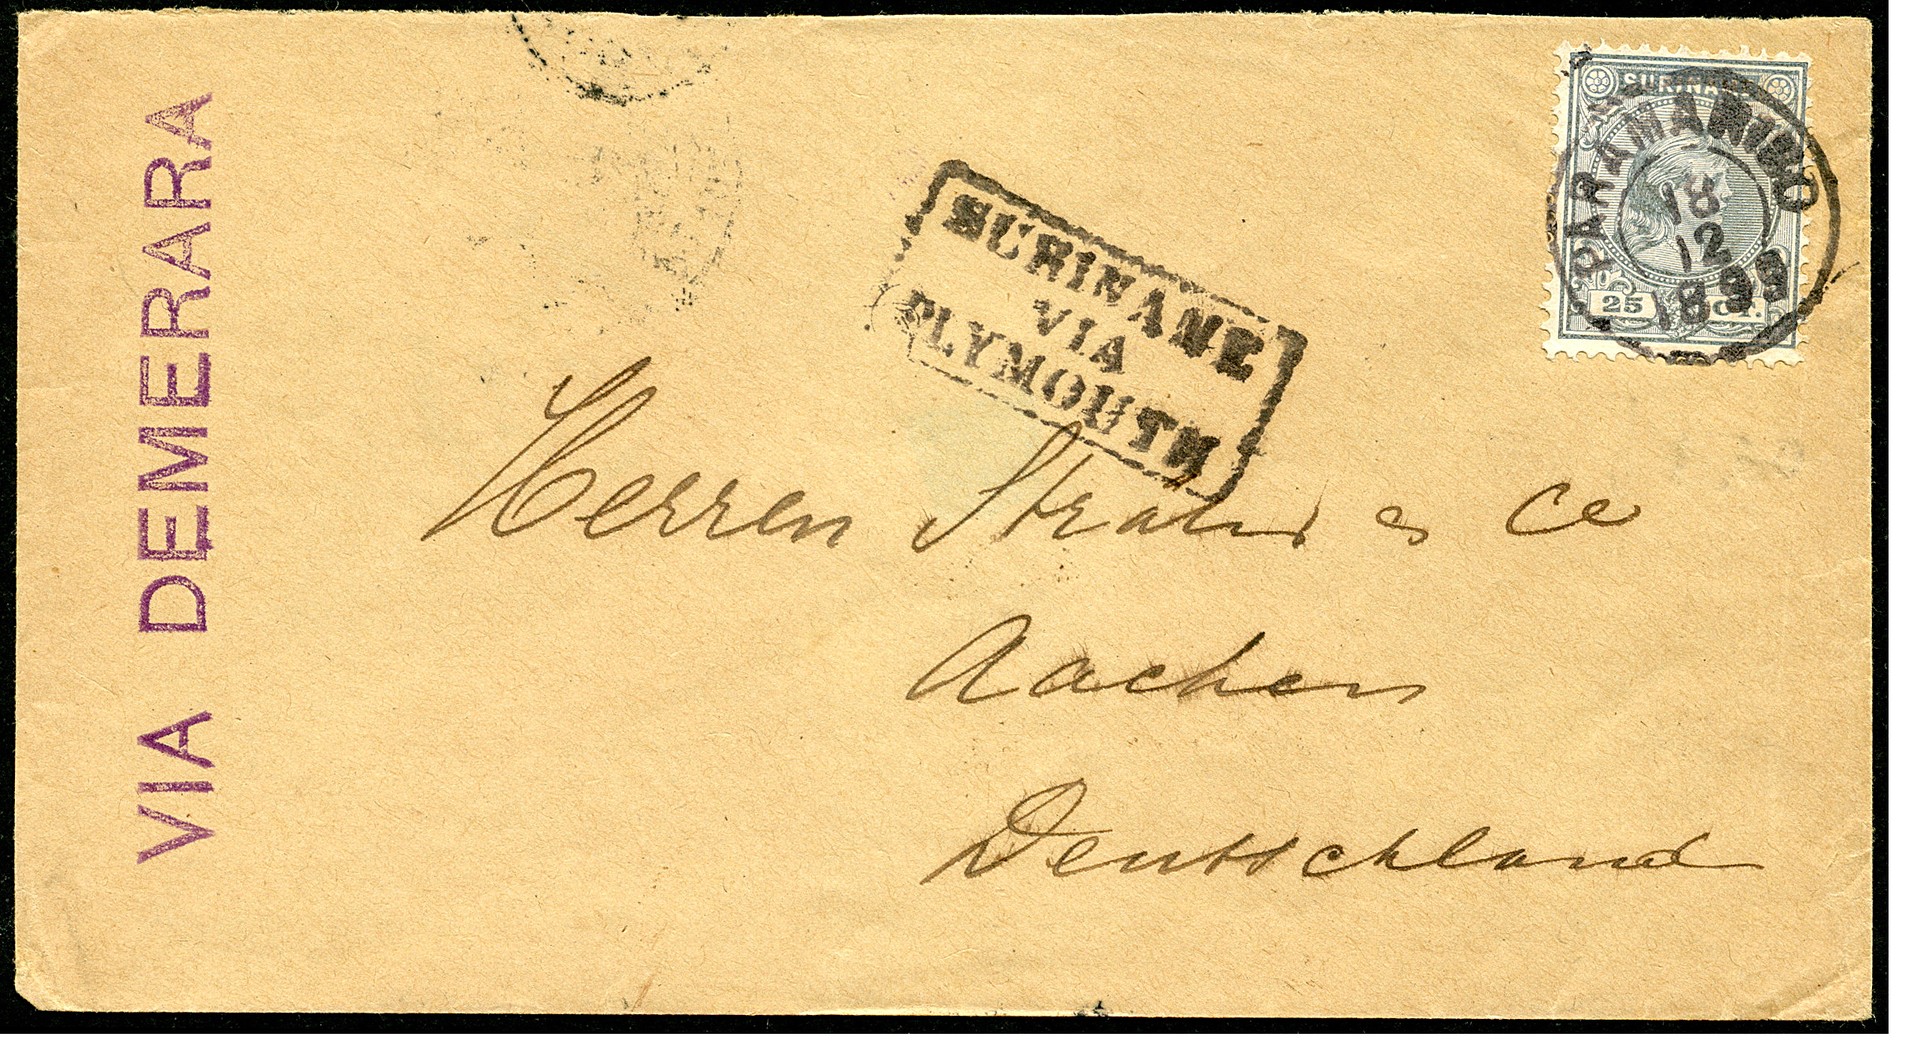 VIA DEMERARA
SURINAME
VIA
PLYMOUTH
SURINAME
PARAMARIBO
18
12
1893
25 CT.
Herren & Ce
Aachen
Deutschland